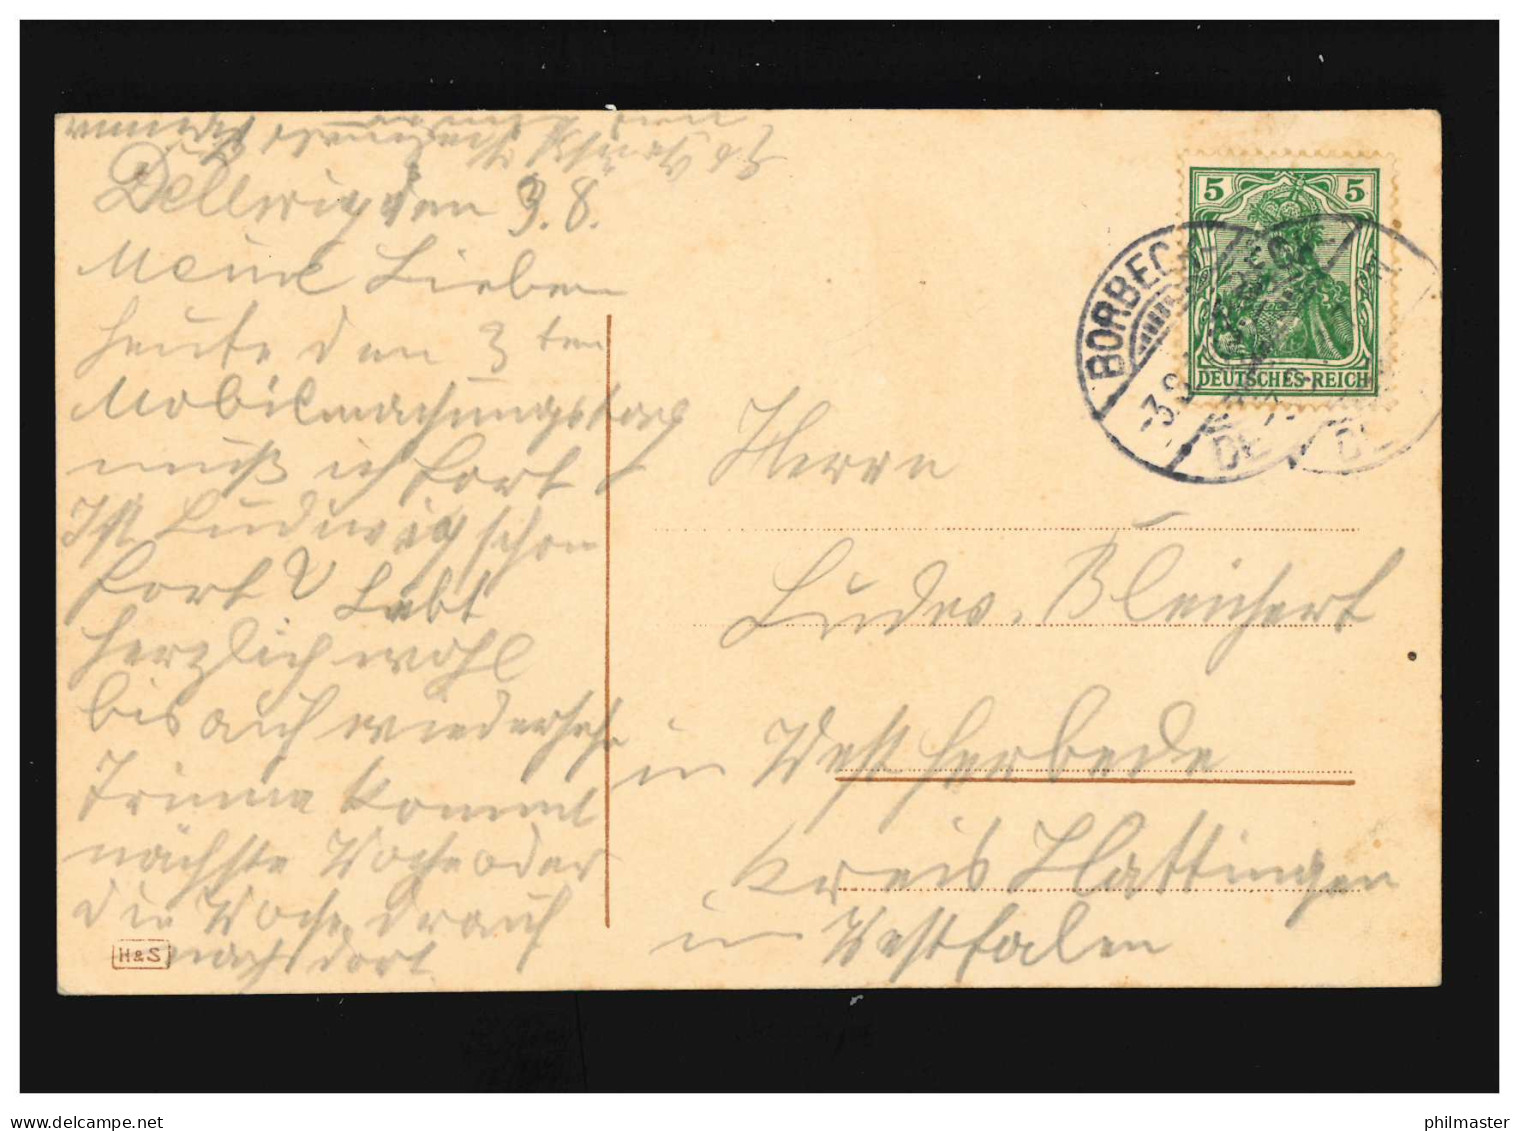 Dellwig den 3. 8.
Meine Lieben
heute den 3 ten
Mobilmachungstag
muß ich fort
Ist Ludwig schon
fort? Lebt
herzlich wohl
bis auf wiedersehn
kommt
nächste Woche oder
die Woche drauf
nach dort.
H&S
5 5
DEUTSCHES REICH
BORBECK
Herrn
Ludw. Bleichert
in Westherbede
Kreis Hattingen
in Westfalen
philmaster
delcampe.net